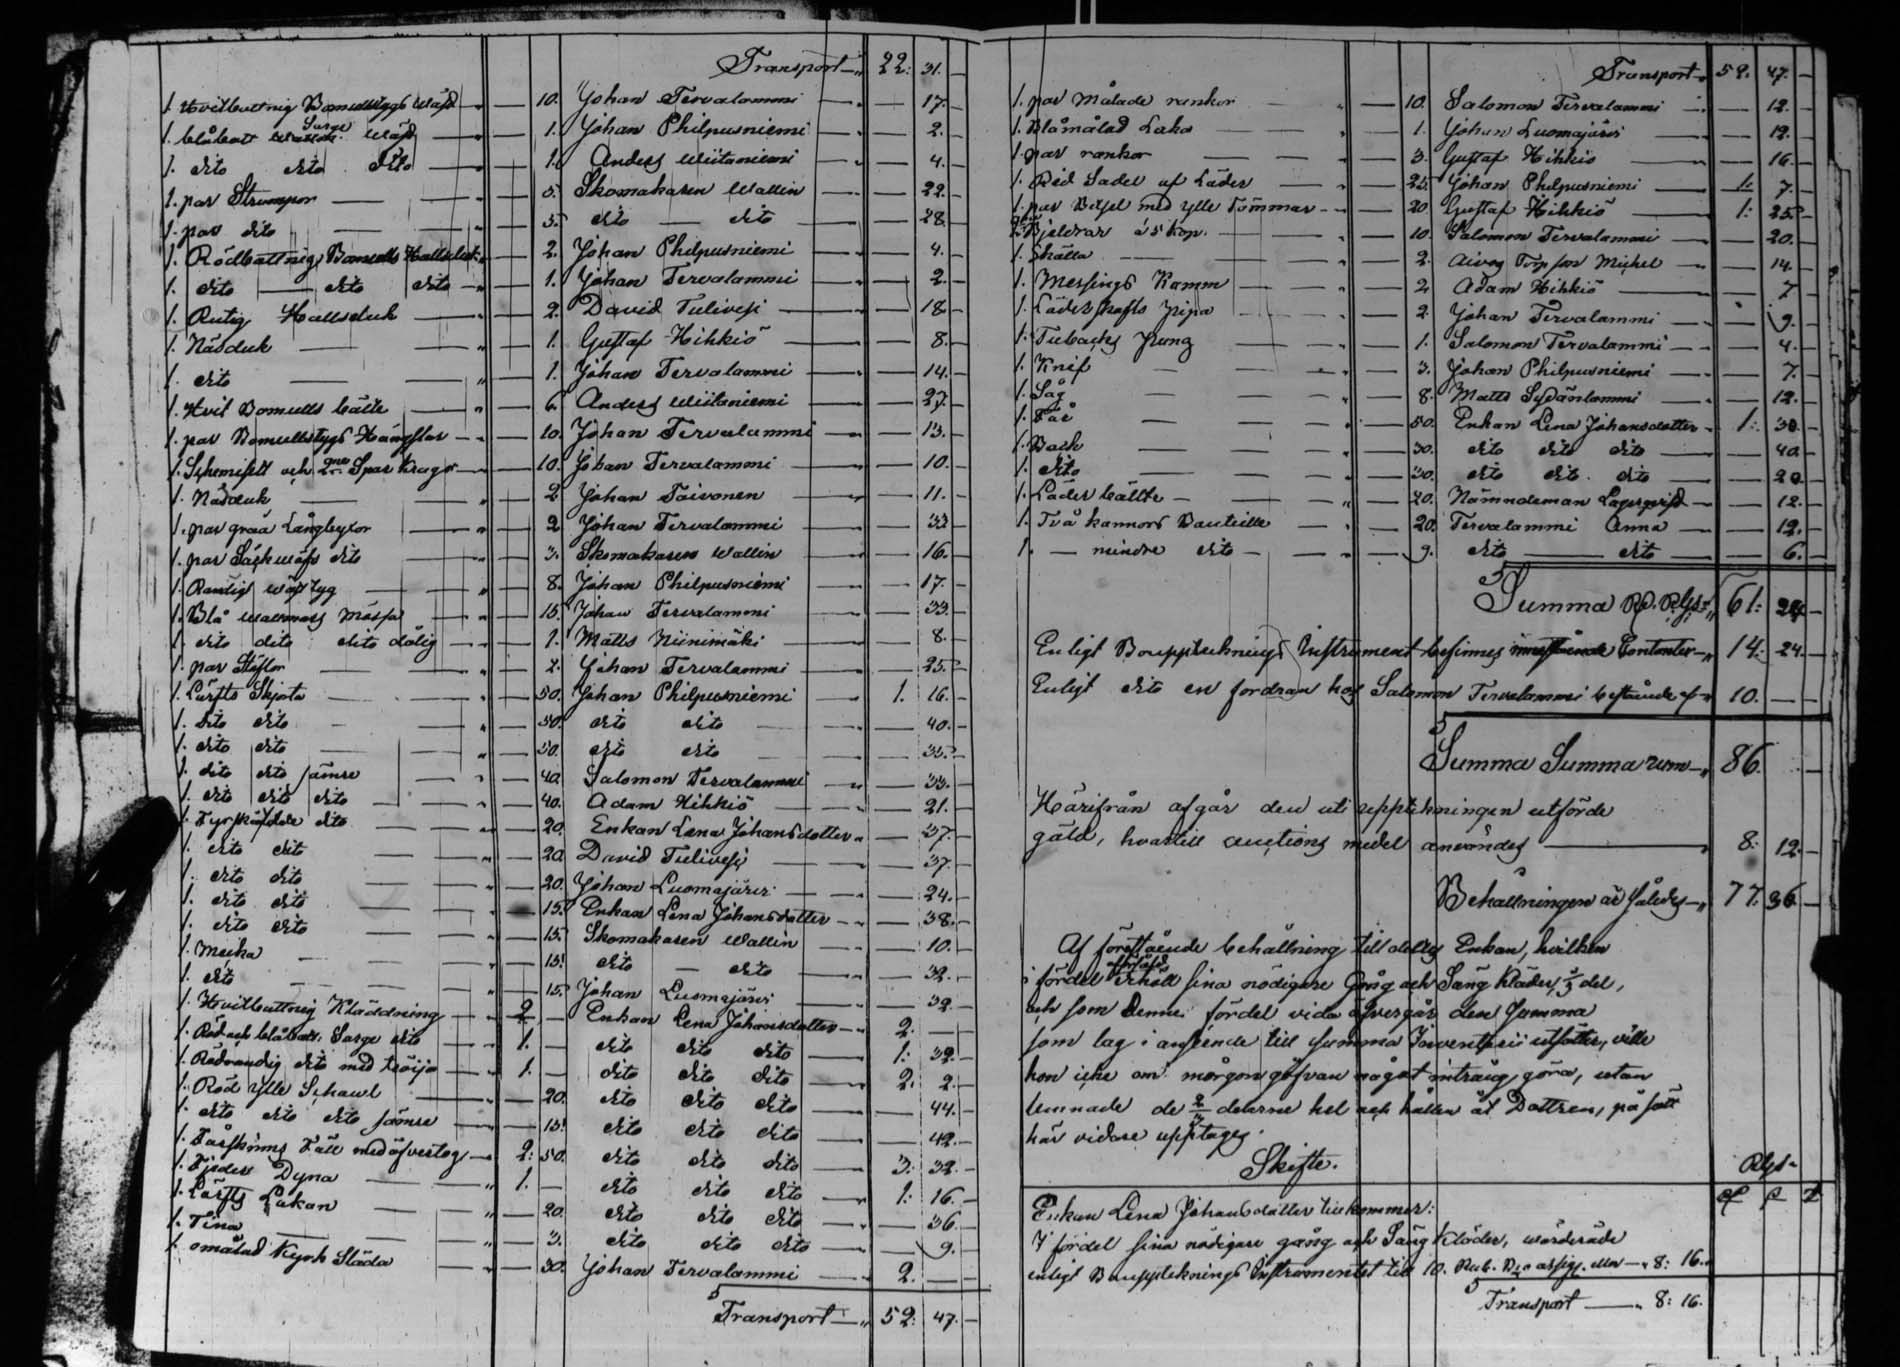 Transport 22: 31.
1. Hvitbottnig Bomullstygs Wäst 10. Johan Tervalammi 17.
1. blåbott Sarge Wäst 1. Johan Philpusniemi 2.
1. dito dito dito 1. Anders Wiitaniemi 4.
1. par Strumpor 5. Skomakaren Wallin 22.
1. par dito 5. dito dito 28.
1. Rödbottnig Bomulls Halsduk 2. Johan Philpusniemi 4.
1. dito dito dito 1. Johan Tervalammi 2.
1. Rutig Halsduk 2. David Tulivesi 18.
1. Näsduk 1. Gustaf Hihkiö 8.
1. dito 1. Johan Tervalammi 14.
1. Hvit Bomulls bälte 6. Anders Wiitaniemi 27.
1. par Bomullstygs Hängslar 10. Johan Tervalammi 13.
1. Schemisett och Spar Kragar 10. Johan Tervalammi 10.
1. Näsduk 2 Johan Toivonen 11.
1. par gråa Långbyxor 2 Johan Tervalammi 33
1. par Säckwäfs dito 3. Skomakaren Wallin 16.
1. Randigt wäst tyg 8. Johan Philpusniemi 17.
1. Blå wallmars Mössa 15. Johan Tervalammi 33.
1. dito dito dito dålig 1. Matts Niinimäki 8.
1. par Stöflor 2. Johan Tervalammi 25.
1. Lärfts Skjorta 50. Johan Philpusniemi 1. 16.
1. dito dito 50. dito dito 40.
1. dito dito 50. dito dito 35.
1. dito dito sämre 40. Salomon Tervalammi 33.
1. dito dito dito 40. Adam Hihkiö 21.
1. Fyrskäftade dito 20. Enkan Lena Johansdotter 37.
1. dito dito 20 David Tulivesi 37.
1. dito dito 20. Johan Luomajärvi 24.
1. dito dito 15. Enkan Lena Johansdotter 38.
1. dito dito 15. Skomakaren Wallin 10.
1. Mecka 15. dito dito 32.
1. dito 15. Johan Luomajärvi 32.
1. Hvitbottnig Klädning 2 Enkan Lena Johansdotter 2.
1. Röd och blåbott: Sarge dito 1. dito dito dito 1: 32.
1. Rödrandig dito med tröija 1. dito dito dito 2: 2.
1. Röd Ylle Schawl 20. dito dito dito 44.
1. dito dito dito sämre 15. dito dito dito 42.
1. Fårskinns Fäll med öfvertog 2: 50. dito dito dito 3: 32.
1. Fjeder Dyna 1. dito dito dito 1: 16.
1. Lärfts Lakan 20. dito dito dito 36.
1. Tina 3. dito dito dito 9.
1. omålad Kyrk Släda 30. Johan Tervalammi 2.
Transport 52: 47.
Transport 52. 47.
1. par Målade rankor 10. Salomon Tervalammi 12.
1. Blåmålad Loka 1. Johan Luomajärvi 12.
1. par rankor 3. Gustaf Hihkiö 16.
1. Rid Sadel af Läder 25. Johan Philpusniemi 1: 7.
1. par Betsel med ylle Tömmar 20. Gustaf Hihkiö 1: 25.
2. Bjeldrar à 5 kop. 10. Salomon Tervalammi 20.
1. Skälla 2. Michel 14.
1. Messings Kamm 2 Adam Hihkiö 7
1. Läderskafts pipa 2. Johan Tervalammi 9.
1. Tubacks Pung 1. Salomon Tervalammi 4.
1. Knif 3. Johan Philpusniemi 7.
1. Såg 8. Matts Sydänlammi 12.
1. Får 50. Enkan Lena Johansdotter 1: 30.
1. Back 30. dito dito dito 40.
1. dito 30. dito dito dito 20.
1. Läder bälte 20. Nämndeman Lagerqvist 12.
1. Två kannors Bouteille 20. Tervalammi Anna 12.
1. mindre dito 9. dito dito 6.
Summa Rd. Rgs 61: 24
Enligt Bouppteknings Instrument befinnes Contanter 14: 24.
Enligt dito en fordran hos Salomon Tervalammi bestående af 10.
Summa Summarum 86.
Härifrån afgår den uti uppteckningen utförde
gäld, hvartill auctions medel användes 8: 12.
Behållningen är således 77. 36.
Af förestående behållning tilldeltes Enkan, hvilken
i fördel erhöll sina nödigare Gång och Säng kläder, 1/3 del,
och som denna fördel vida öfvergår den Summa
som lag i anseende till summa Inventarii utsätter, ville
hon icke om morgongåfvan något intrång göra, utan
lemnade de 2/3 delarne hel och hållen åt Dottren, på sätt
här vidare upptages.
Skifte.
Rgs
Enkan Lena Johansdotter tillkommer:
I fördel sina nödigare gång och Säng kläder, wärderade
enligt Bouppteknings Instrumentet till 10. Rub. Bco assign. eller 8: 16.
Transport 8: 16.